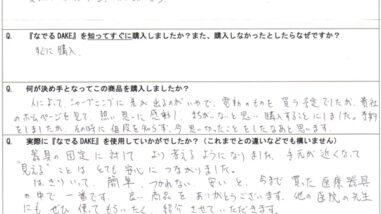 Q. 『なでるDAKE』を知ってすぐに購入しましたか？また、購入しなかったとしたらなぜですか？
すぐに購入.
Q. 何が決め手となってこの商品を購入しましたか？
人によって、シャープニングに差が出るのがいやで、電動のものを買う予定でしたが、貴社
のホームページを見て、熱い思いに感動し、まちがいないと思い購入することにしました。予約
をしましたが、その時に値段を知らず、今思いかったことをしたなあと思います。
Q. 実際に『なでるDAKE』を使用していかがでしたか？（これまでとの違いなどでも構いません）
器具の固定に対して より考えるようになりました。手元が近くなって
"見える"ことは とても安心につながりました。
はっきりいって、簡単、つかれない、安いと、今まで買った医療器具
の中で一番です。良い商品をありがとうございます。他の医院の先生
にもぜひ使ってもらいたく、紹介させていただきます。